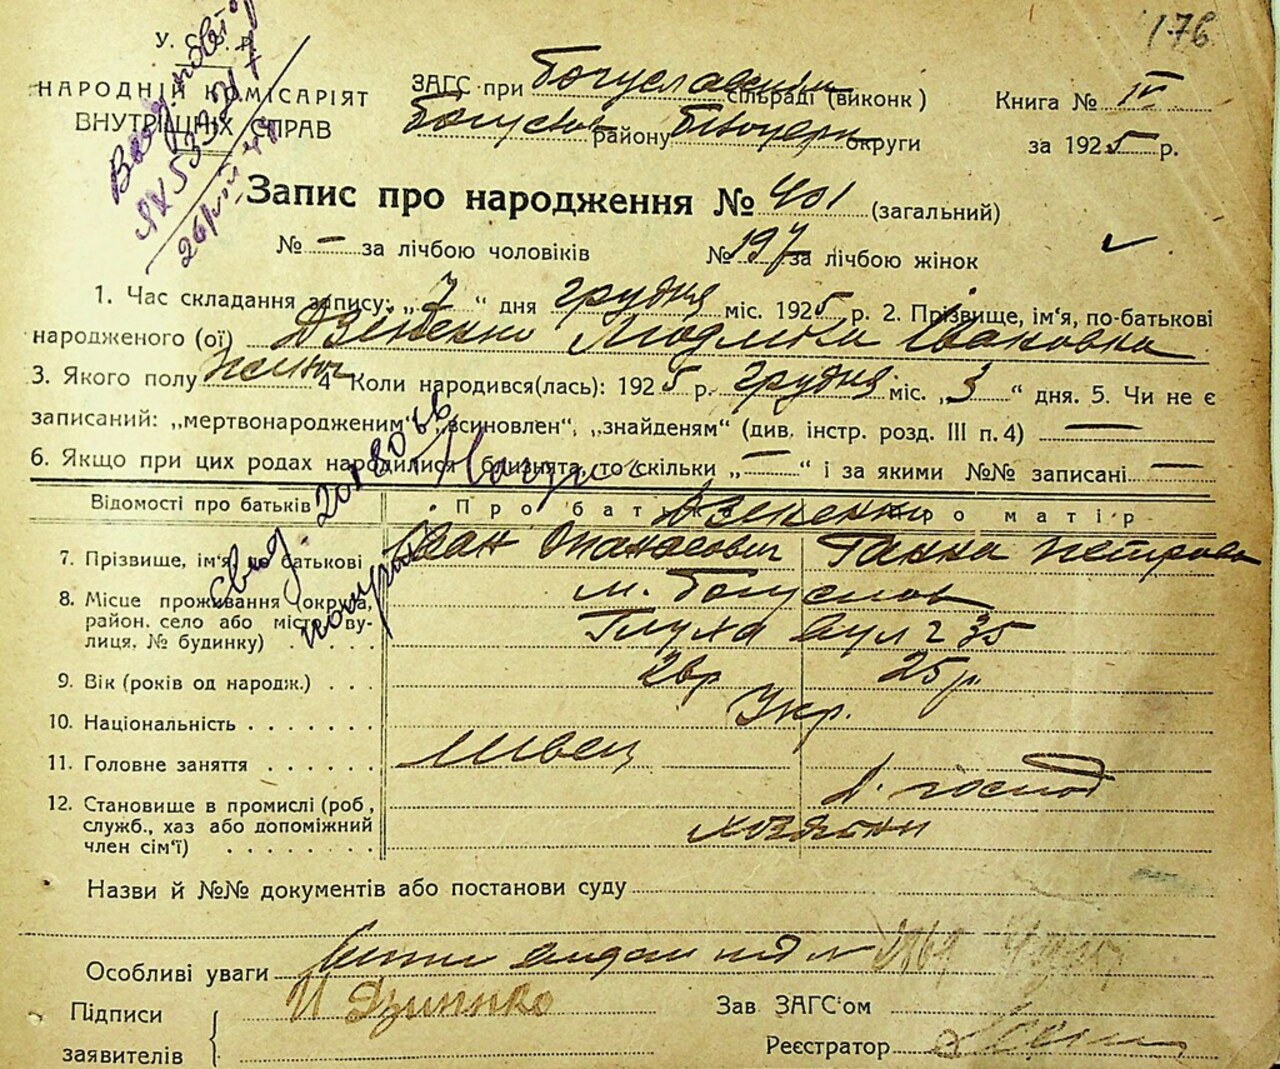 176
У. С. Р. Р.
НАРОДНІЙ КОМІСАРІЯТ
ВНУТРІШНІХ СПРАВ
ЗАГС при Богуславськім сільраді (виконк)
Богуслав району Білоцерк округи
Книга № IV
за 1925 р.
Запис про народження № 401 (загальний)
№ – за лічбою чоловіків № 197 за лічбою жінок
1. Час складання запису: „7“ дня грудня міс. 1925 р. 2. Прізвище, ім‘я, по-батькові
народженого (ої) Дзененко Людмила Івановна
3. Якого полу жіноч 4 Коли народився(лась): 1925 р. грудня міс. „3“ дня. 5. Чи не є
записаний: „мертвонародженим“, „всиновлен“, „знайденям“ (див. інстр. розд. III п. 4) —
6. Якщо при цих родах народилися близнята, то скільки „—“ і за якими №№ записані —
Відомості про батьків Про батька Про матір
Дзененко
7. Прізвище, ім‘я, по батькові Іван Опанасович Ганна Петровна
8. Місце проживання (округа, м. Богуслав
район. село або місто, ву-
лиця, № будинку) Глуха вул 35
9. Вік (років од народж.) 26р 25р.
10. Національність Укр.
11. Головне заняття Швець
12. Становище в промислі (роб, д. господ
служб., хаз або допоміжний хозяйки
член сім‘ї)
Назви й №№ документів або постанови суду
Особливі уваги видан під № 2869
Підписи
заявителів
Зав ЗАГС‘ом
Реєстратор